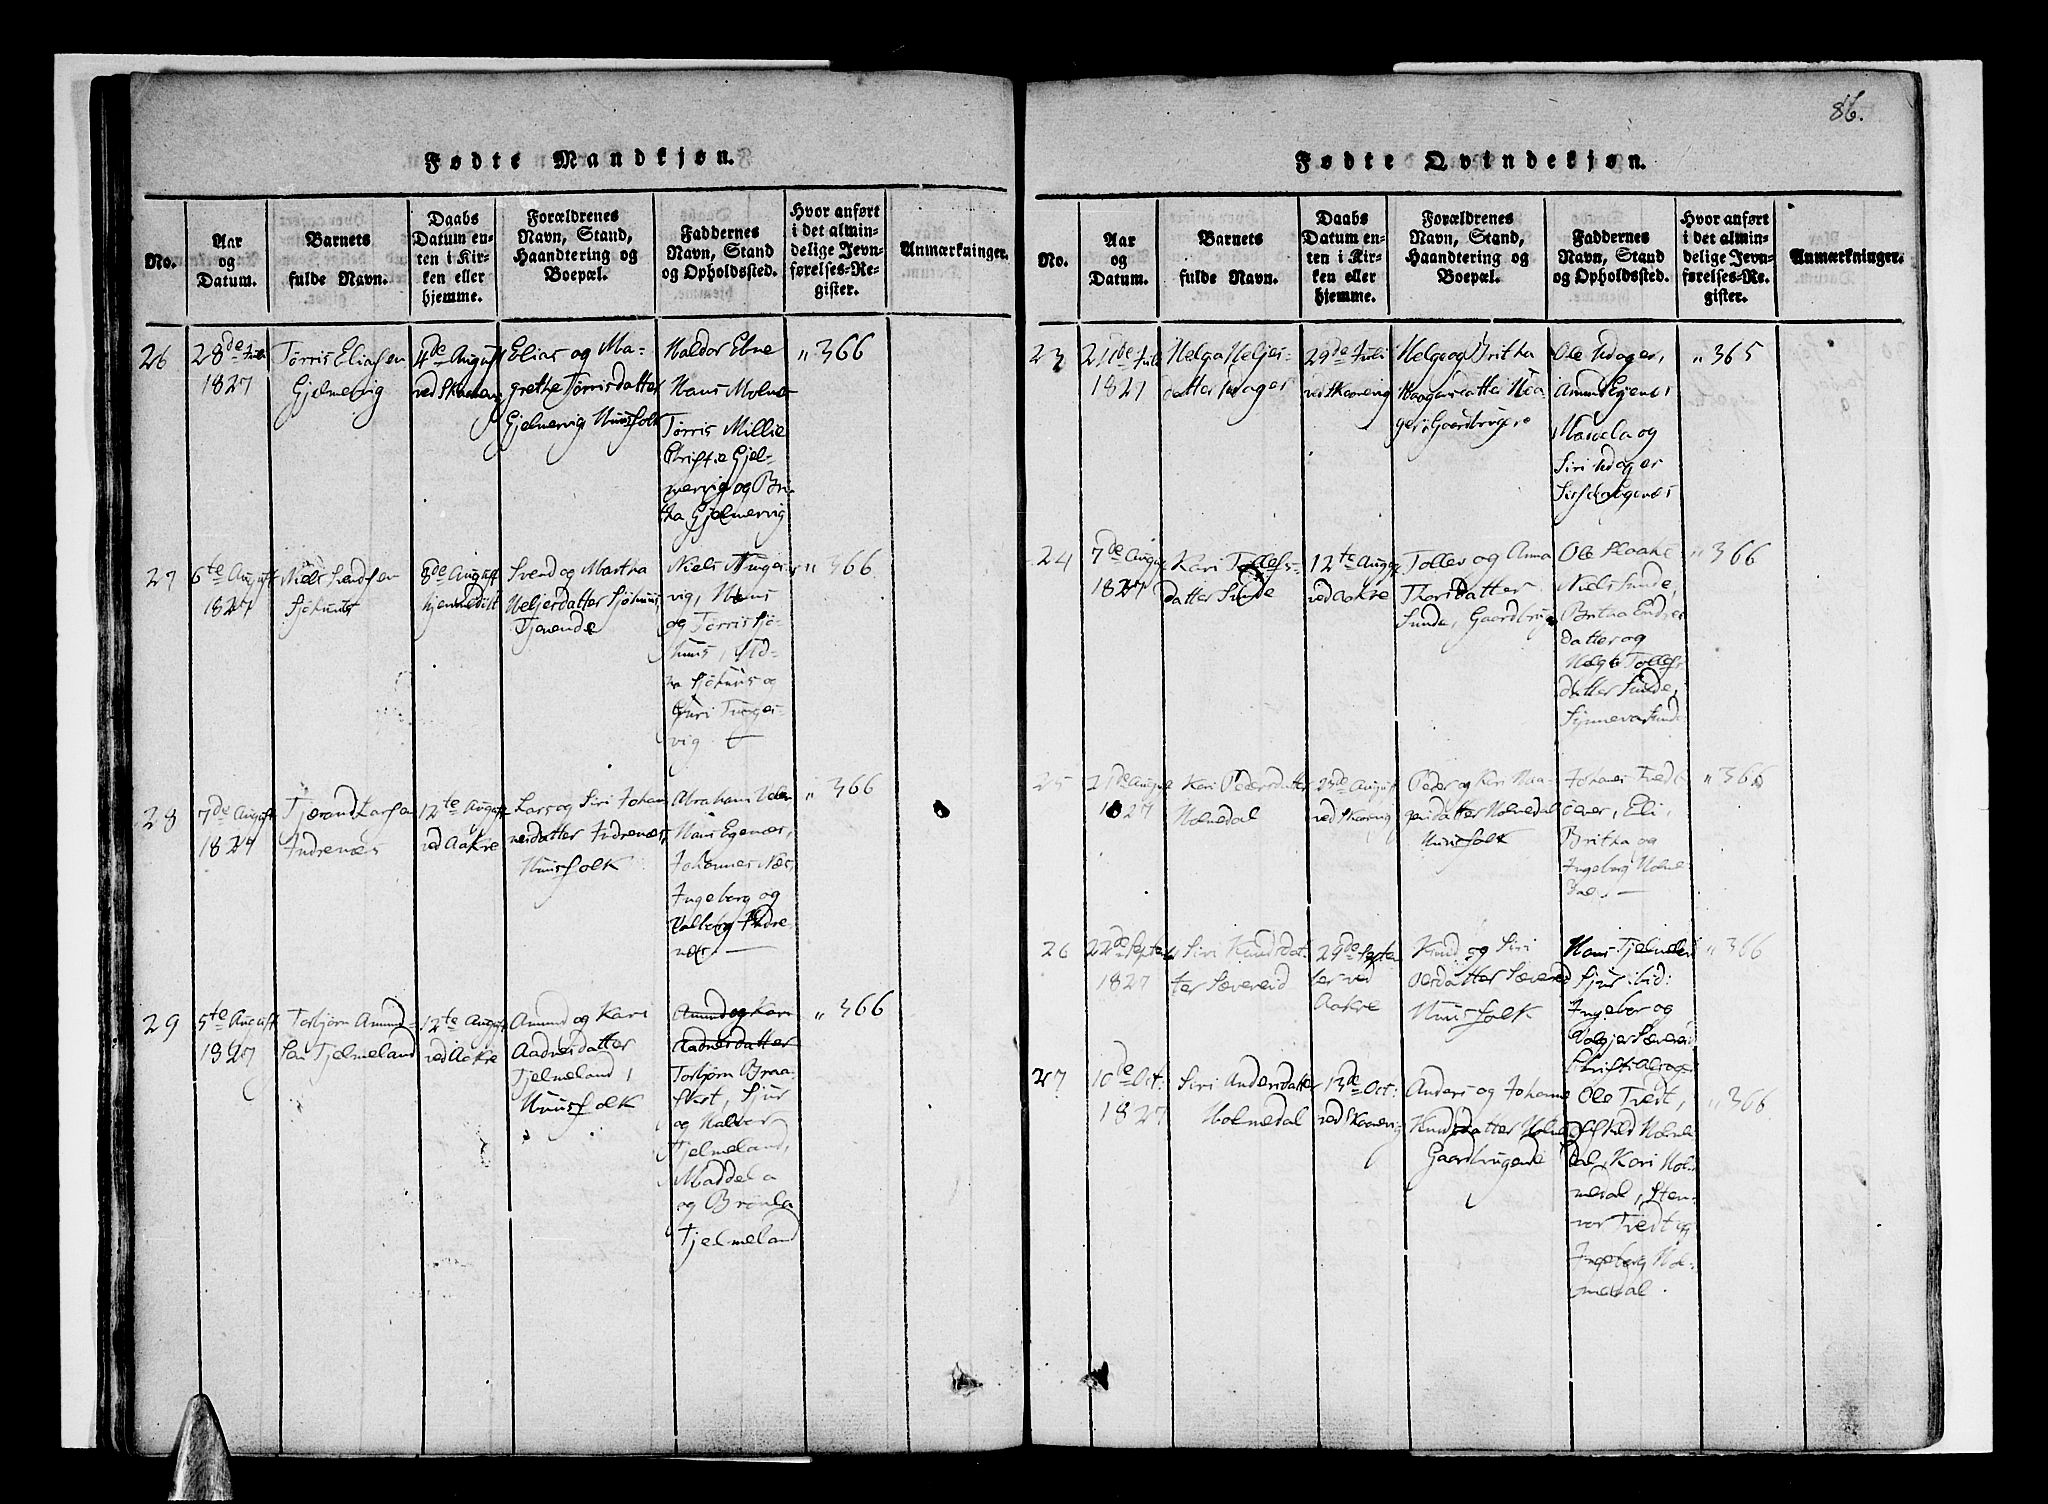 86.
Fødte Mandkjøn.
No.
Aar
og
Datum.
Barnets
fulde Navn.
Daabs
Datum en-
ten i Kir-
ken eller
hjemme.
Forældrenes
Navn, Stand,
Haandtering og
Boepæl.
Faddernes
Navn, Stand
og Opholdssted.
Hvor anført
i det almin-
delige Jevn-
førelses-Re-
gister.
Anmærkninger.
26
28de Juli
1827
Tørris Eliassen
Gjelmervig
4de August
ved
Elias og Ma-
grethe Tørrisdatter
Gjelmervig Huusfolk
Haldor Ebne
Hans
Tørris Millie
Christie Gjel-
mervig og Bri-
tha Gjelmervig
" 366
27
6te August
1827
Niels Svendsen
Sjøhuus
8de August
hjemmedøbt
Svend og Martha
Heljesdatter Sjøhuus
Tjenende
Niels Tunges-
vig, Hans
og Tørris Sjø-
huus,
Sjøhuus og
Guri Tunges-
vig
" 366
28
7de August
1827
Tjærand Larsen
Indrenæs
12te August
ved Aakre
Lars og Siri Johan-
nesdatter Indrenæs,
Huusfolk
Abraham
Hans Egenæs,
Johannes Næs,
Ingeborg og
Valborg Indre-
næs.
" 366
29
5te August
1827
Torbjørn Amund-
sen Tjelmeland
12te August
ved Aakre
Amund og Kari
Aadnesdatter
Tjelmeland,
Huusfolk
Amund og Kari
Aadnesdatter
Torbjørn Braa-
, Sjur
og Haldor
Tjelmeland,
Maddela
og Brønla
Tjelmeland
" 366
Fødte Qvindekjøn.
No.
Aar
og
Datum.
Barnets
fulde Navn.
Daabs
Datum en-
ten i Kir-
ken eller
hjemme.
Forældrenes
Navn, Stand,
Haandtering og
Boepæl.
Faddernes
Navn, Stand
og Opholdssted.
Hvor anført
i det almin-
delige Jevn-
førelses-Re-
gister.
Anmærkninger.
23
Juli
1827
Helga Heljes-
datter
29de Juli
ved Skonevig
Helge og Britha
Ole
Amund Egenes
og
Siri
" 365
24
7de August
1827
Kari Tollefs-
datter Sunde
12te August
ved Aakre
Tollev og Anna
Thorsdatter
Sunde,
Ole
Niels Sunde,
Britaa
datter og
Helge Tollefs-
datter Sunde,
Synneva Sunde
" 366
25
August
1827
Kari Pedersdatter
Holmedal
August
ved
Peder og Kari
Holmedal
Huusfolk
Johannes Tvedt
Eli,
Britha og
Ingeborg Holme-
dal. —
" 366
26
22de September
1827
Siri Knudsdat-
ter Sævereid
29de Septem-
ber ved
Aakre
Knud og Siri
Sævereid
Huusfolk
Hans Tjelmeland
Sjur ibid:
Ingebor og
Sævereid
" 366
27
10de Oct:
1827
Siri Andersdatter
Holmedal
13de Oct:
ved Skonevig
Anders og Johanne
Knudsdatter
Gaardbrugende
Ole Tvedt,
Holme-
dal, Kari Hol-
medal, Sten-
vor Tvedt og
Ingeborg Hol-
medal.
" 366